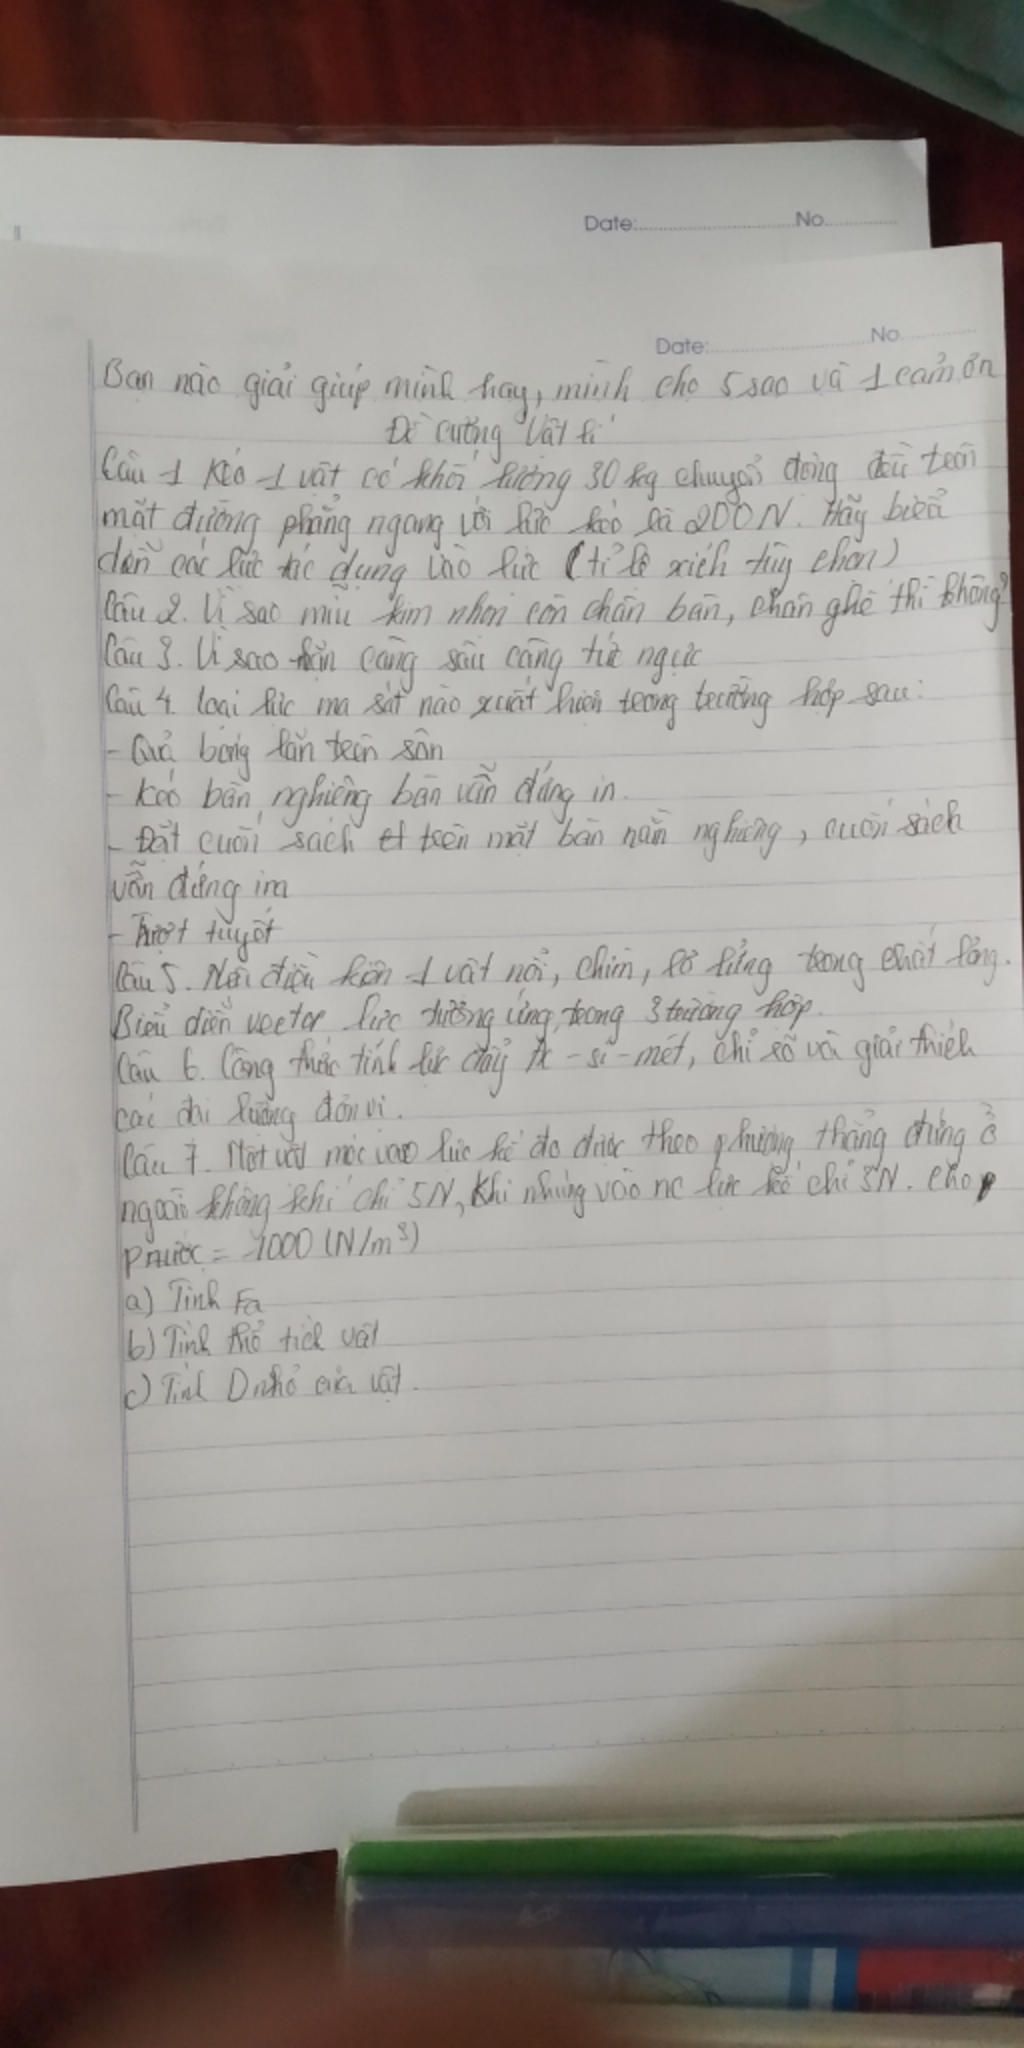 Date: No
Date: No
Bạn nào giải giúp mình hay, mình cho 5 sao và 1 cảm ơn
Đề cương Vật lí
Câu 1 Kéo 1 vật có khối lượng 30 kg chuyển động đều trên
mặt đường phẳng ngang với lực kéo là 200N. Hãy biểu
diễn các lực tác dụng vào lực (tỉ lệ xích tùy chọn)
Câu 2. Vì sao mũi kim nhọn còn chân bàn, chân ghế thì không?
Câu 3. Vì sao lặn càng sâu càng tức ngực
Câu 4. loại lực ma sát nào xuất hiện trong trường hợp sau:
- Quả bóng lăn trên sân
- Kéo bàn nghiêng bàn vẫn đứng in.
- Đặt cuốn sách trên mặt bàn nằm nghiêng, cuốn sách
vẫn đứng im
- Trượt tuyết
Câu 5. Nêu điều kiện 1 vật nổi, chìm, lơ lửng trong chất lỏng.
Biểu diễn vector lực tương ứng trong 3 trường hợp.
Câu 6. Công thức tính lực đẩy Ác-si-mét, chỉ rõ và giải thích
các đại lượng đơn vị.
Câu 7. Một vật móc vào lực kế đo được theo phương thẳng đứng ở
ngoài không khí chỉ 5N, Khi nhúng vào nc lực kế chỉ 3N. Cho
Pnước = 1000 (N/m³)
a) Tính Fa
b) Tính thể tích vật
c) Tính D của vật.